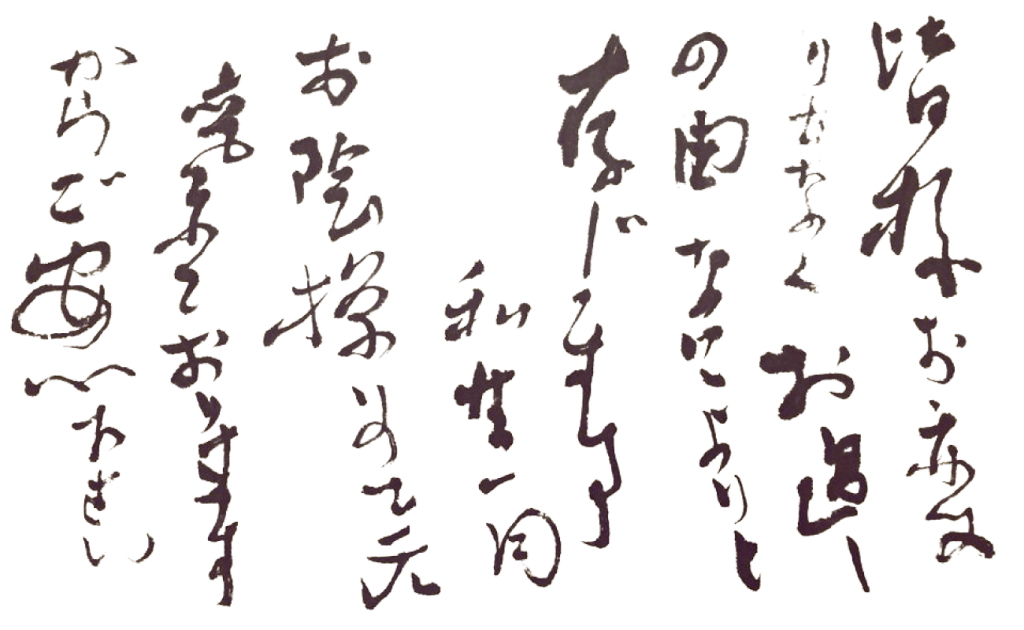 皆様お変
りもなくお過し
の由なによりと
存じます
私共一同
お陰様元
おります
からご安心下さい